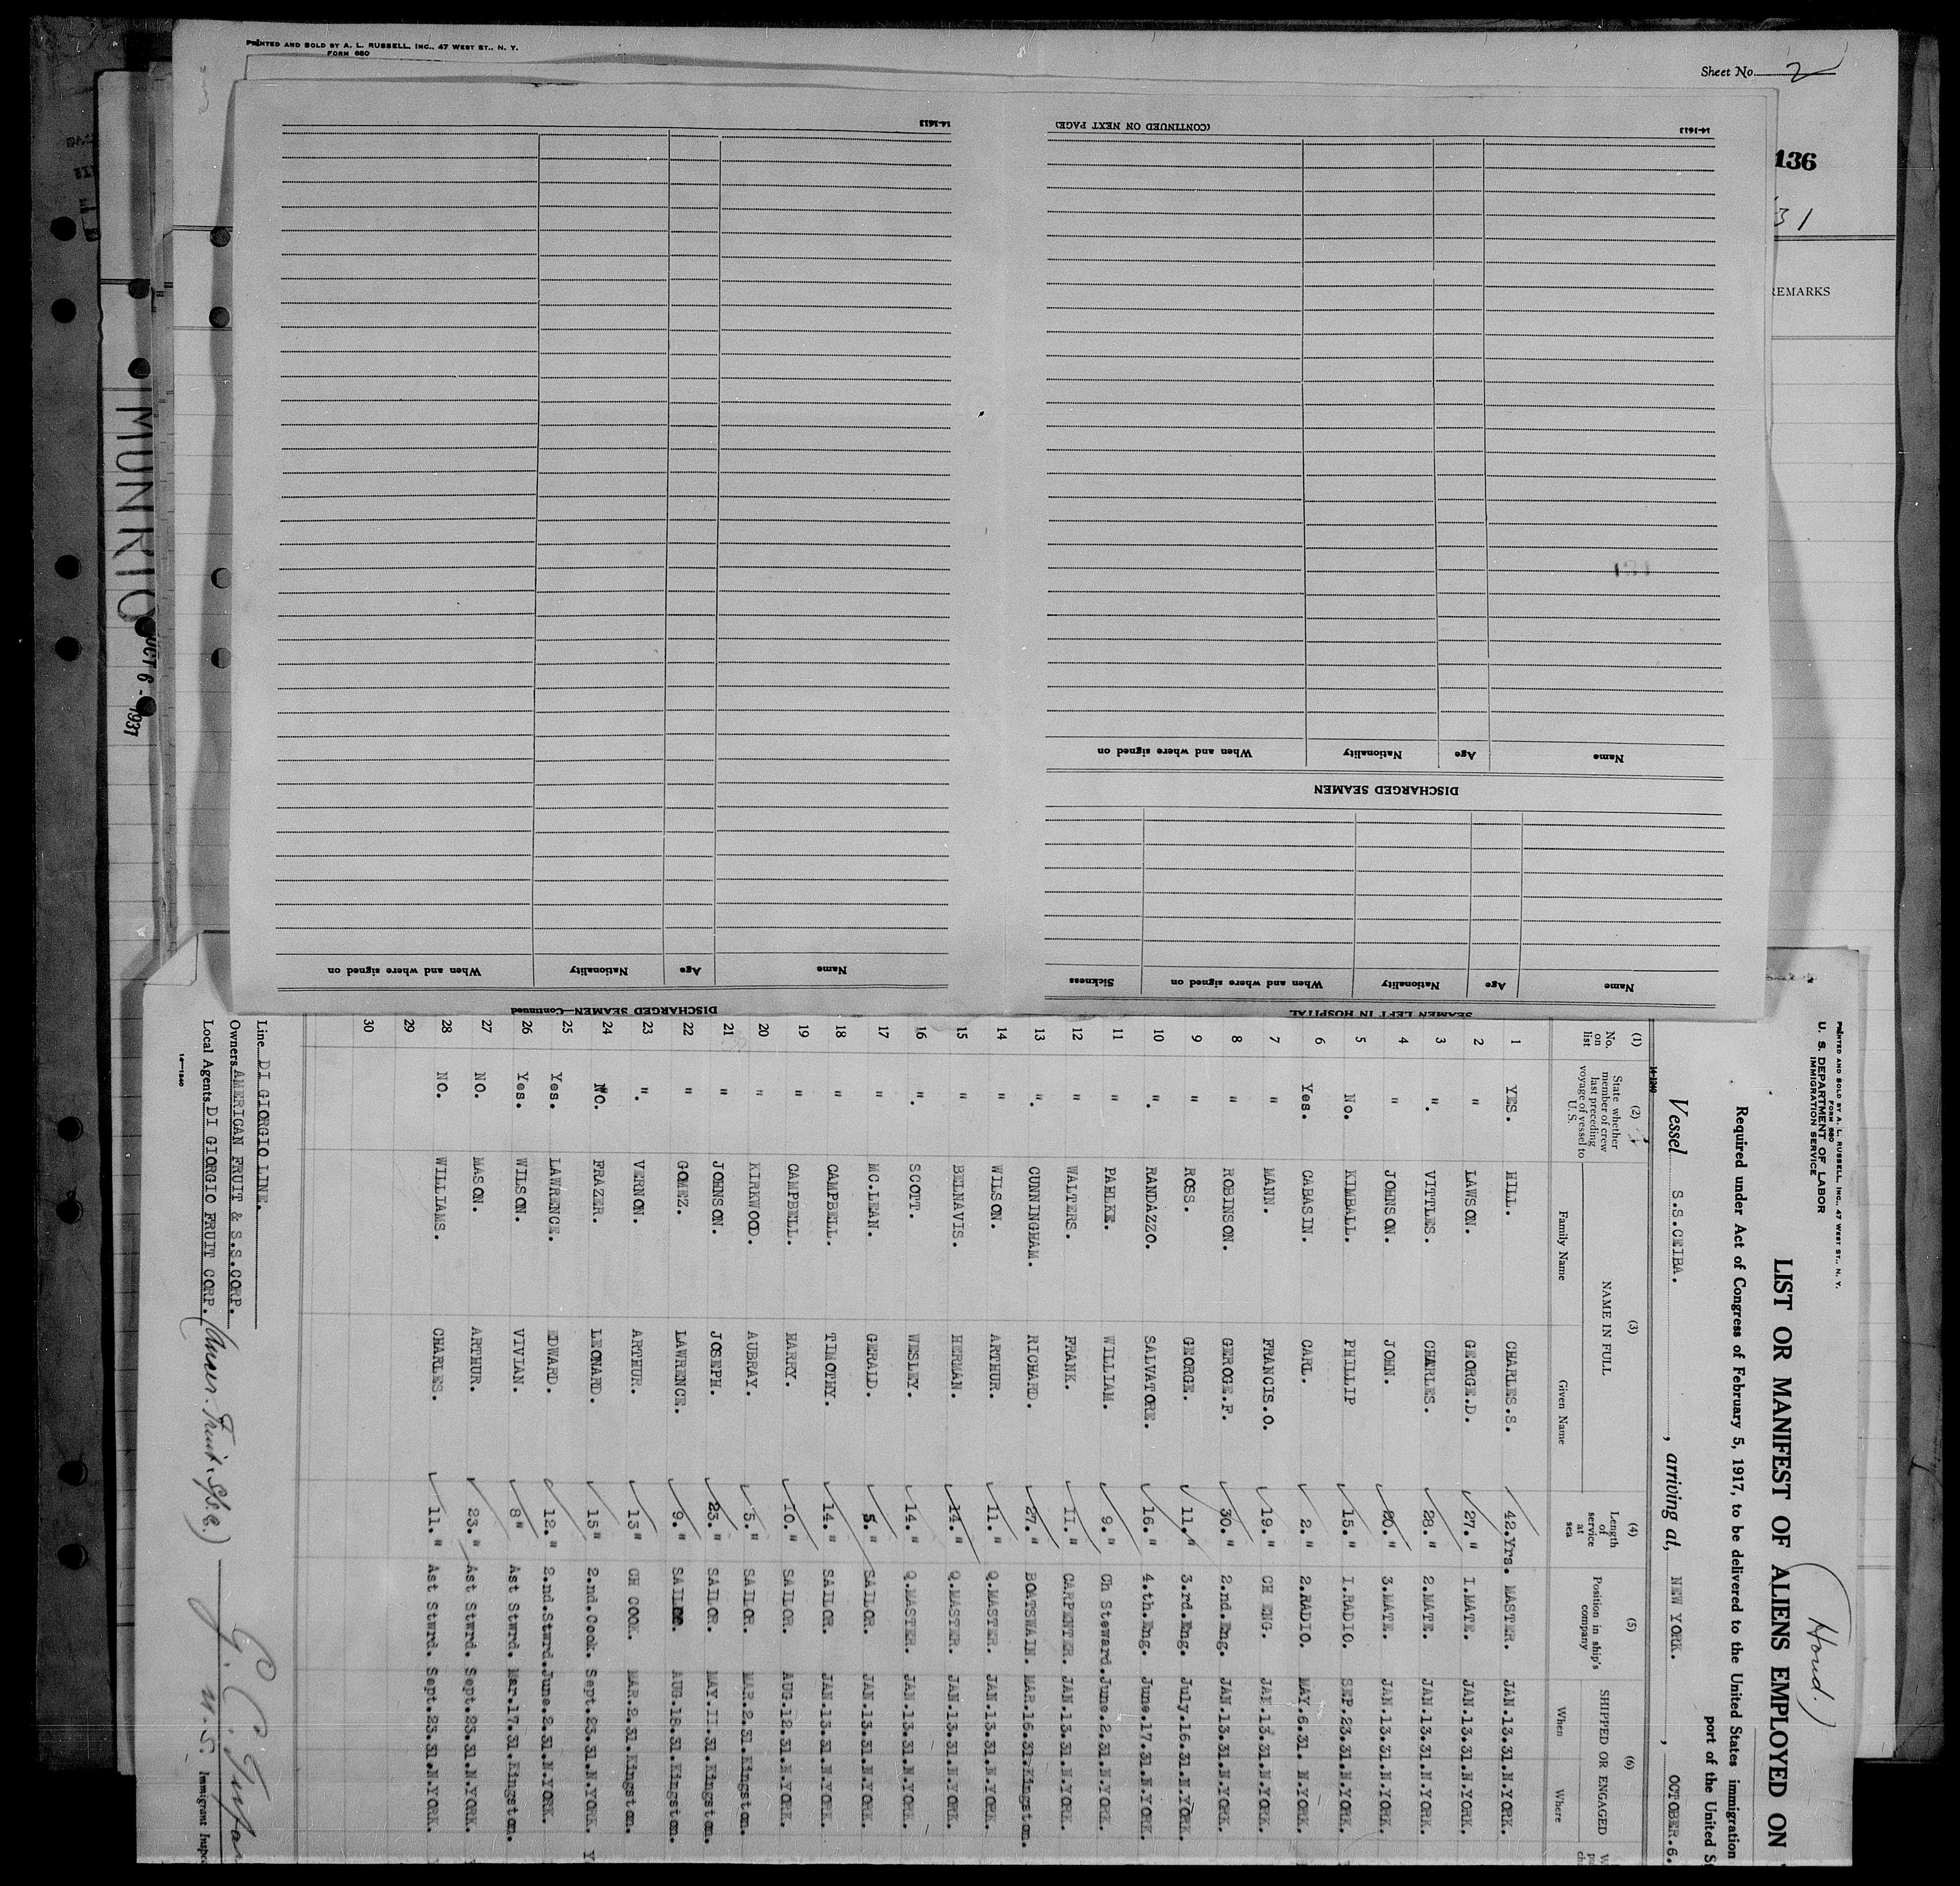 PRINTED AND SOLD BY A. L. RUSSELL, INC., 47 WEST ST., N. Y.
FORM 680
Sheet No. 2
136
31
REMARKS
MUNRIO
OCT 6 - 1931
14-1613
(CONTINUED ON NEXT PAGE)
14-1613
Name Age Nationality When and where signed on
DISCHARGED SEAMEN
Name Age Nationality When and where signed on Sickness
SEAMEN LEFT IN HOSPITAL
Name Age Nationality When and where signed on
DISCHARGED SEAMEN—Continued
PRINTED AND SOLD BY A. L. RUSSELL, INC., 47 WEST ST., N. Y.
FORM 680
U. S. DEPARTMENT OF LABOR
IMMIGRATION SERVICE
(Hond.)
LIST OR MANIFEST OF ALIENS EMPLOYED ON
Required under Act of Congress of February 5, 1917, to be delivered to the United States immigration
port of the United
Vessel S.S.CEIBA. , arriving at, NEW YORK. , OCTOBER.6.
14-1240
(1) (2) (3) (4) (5) (6)
No. on list State whether member of crew last preceding voyage of vessel to U.S. NAME IN FULL Length of service at sea Position in ship's company SHIPPED OR ENGAGED
Family Name Given Name When Where
1 YES. HILL. CHARLES.S. 42.Yrs. MASTER. JAN.13.31.N.YORK.
2 " LAWSON. GEORGE.D. 27. " I.MATE. JAN.13.31.N.YORK.
3 ". VITTLES. CHARLES. 28. " 2.MATE. JAN.13.31.N.YORK.
4 " JOHNSON. JOHN. 20. " 3.MATE. JAN.13.31.N.YORK.
5 No. KIMBALL. PHILLIP 15. " I.RADIO. SEP.23.31.N.YORK.
6 Yes. CABASIN. CARL. 2. " 2.RADIO. MAY.6.31. N.YORK.
7 " MANN. FRANCIS.O. 19. " CH ENG. JAN.13.31.N.YORK.
8 " ROBINSON. GEROGE.F. 30. " 2.nd.Eng. JAN.13.31.N.YORK.
9 " ROSS. GEORGE. 11. " 3.rd.Eng. July.16.31.N.YORK.
10 ". RANDAZZO. SALVATORE. 16. " 4.th.Eng. June.17.31.N.YORK.
11 " PAHLKE. WILLIAM. 9. " Ch Steward.June.2.31.N.YORK.
12 " WALTERS. FRANK. 11. " CARPENTER. JAN.13.31.N.YORK.
13 ". CUNNINGHAM. RICHARD. 27. " BOATSWAIN. MAR.16.31.Kingston.
14 " WILSON. ARTHUR. 11. " Q.MASTER. JAN.13.31.N.YORK.
15 " BELNAVIS. HERMAN. 14. " Q.MASTER. JAN.13.31.N.YORK.
16 ". SCOTT. WESLEY. 14. " Q.MASTER. JAN.13.31.N.YORK.
17 " MC.LEAN. GERALD. 5. " SAILOR. JAN.13.31.N.YORK.
18 " CAMPBELL. TIMOTHY. 14. " SAILOR. JAN.13.31.N.YORK.
19 " CAMPBELL. HARRY. 10. " SAILOR. AUG.12.31.N.YORK.
20 " KIRKWOOD. AUBRAY. 5. " SAILOR. MAR.2.31.Kingston.
21 " JOHNSON. JOSEPH. 23. " SAILOR. MAY.II.31.Kingston.
22 " GOMEZ. LAWRENCE. 9. " SAILOR. AUG.18.31.Kingston.
23 ". VERNON. ARTHUR. 13 " CH COOK. MAR.2.31.Kingston.
24 NO. FRAZER. LEONARD. 15 " 2.nd.Cook. Sept.23.31.N.YORK.
25 Yes. LAWRENCE. EDWARD. 12. " 2.nd.Stwrd.June.2.31.N.YORK.
26 Yes. WILSON. VIVIAN. 8 " Ast Stwrd. Mar.17.31.Kingston.
27 NO. MASON. ARTHUR. 23. " Ast Stwrd. Sept.23.31.N.YORK.
28 NO. WILLIAMS. CHARLES. 11. " Ast Stwrd. Sept.23.31.N.YORK.
29
30
Line DI GIORGIO LINE.
Owners AMERICAN FRUIT & S.S.CORP.
Local Agents DI GIORGIO FRUIT CORP. (Amer. Fruit. S.S.C.)
U.S. Immigrant
14-1240